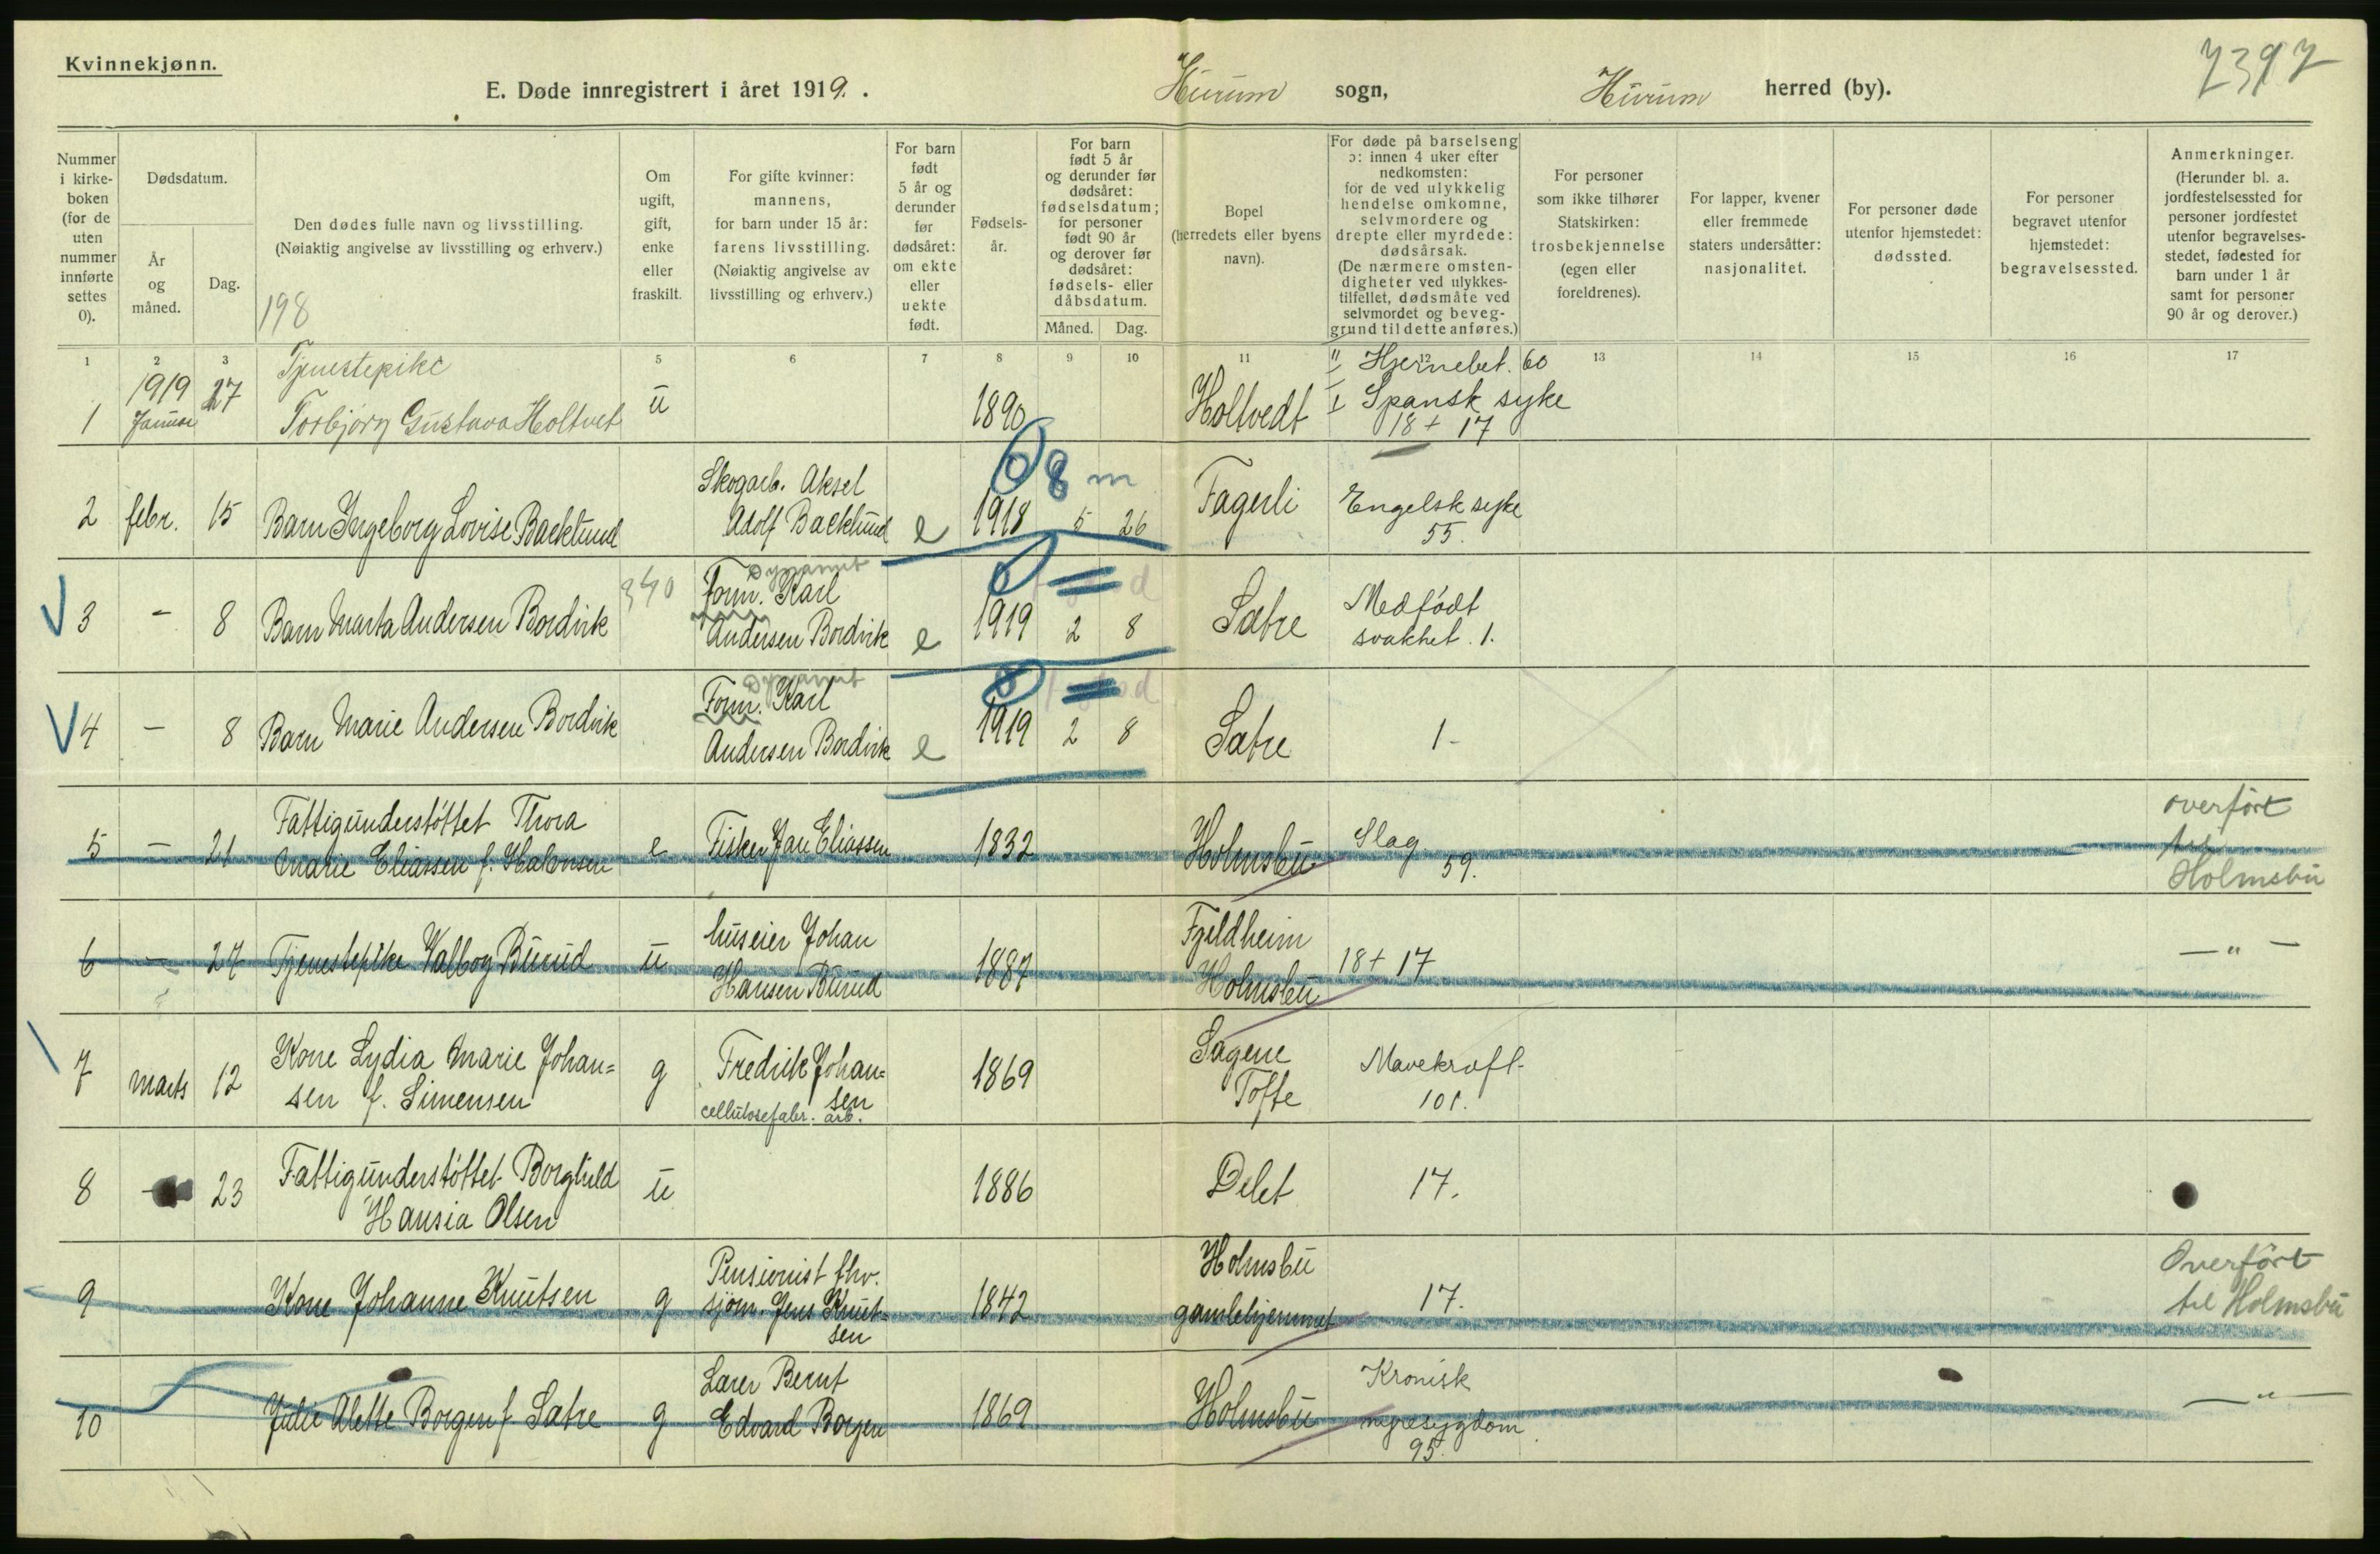 Kvinnekjønn.
7397
E. Døde innregistrert i året 1919. . Hurum sogn, Hurum herred (by).
Nummer i kirke-boken (for de uten nummer innførte settes 0).
Dødsdatum.
År og måned.
Dag.
Den dødes fulle navn og livsstilling.
(Nøiaktig angivelse av livsstilling og erhverv.)
198
Om ugift, gift, enke eller fraskilt.
For gifte kvinner: mannens, for barn under 15 år: farens livsstilling. (Nøiaktig angivelse av livsstilling og erhverv.)
For barn født 5 år og derunder før dødsåret: om ekte eller uekte født.
Fødsels-år.
For barn født 5 år og derunder før dødsåret: fødselsdatum; for personer født 90 år og derover før dødsåret: fødsels- eller dåbsdatum.
Måned. Dag.
Bopel (herredets eller byens navn).
For døde på barselseng ɔ: innen 4 uker efter nedkomsten: for de ved ulykkelig hendelse omkomne, selvmordere og drepte eller myrdede: dødsårsak. (De nærmere omsten-digheter ved ulykkes-tilfellet, dødsmåte ved selvmordet og beveg-grund til dette anføres.)
For personer som ikke tilhører Statskirken: trosbekjennelse (egen eller foreldrenes).
For lapper, kvener eller fremmede staters undersåtter: nasjonalitet.
For personer døde utenfor hjemstedet: dødssted.
For personer begravet utenfor hjemstedet: begravelsessted.
Anmerkninger. (Herunder bl. a. jordfestelsessted for personer jordfestet utenfor begravelses-stedet, fødested for barn under 1 år samt for personer 90 år og derover.)
1 2 3 5 6 7 8 9 10 11 12 13 14 15 16 17
1919 27 Tjenestepike u 1890 Holtvedt II Hjernebet. 60
1 Januar Torbjørg Gustava Holtvet I Spansk syke
18 + 17
8 m
Skogarb. Aksel
2 febr. 15 Barn Ingeborg Lovise Backlund Adolf Backlund e 1918 5 26 Fagerli Engelsk syke
55.
340 Dynamit
Form. Karl
3 - 8 Barn Marta Andersen Bordvik Andersen Bordvik e 1919 2 8 Sætre Medfødt
svakhet. 1.
Dynamit
Form. Karl
4 - 8 Barn Marie Andersen Bordvik Andersen Bordvik e 1919 2 8 Sætre 1-
5 - 21 Fattigunderstøttet Thora
Marie Eliassen f. Hakensen e Fisker Jan Eliassen 1832 Holmsbu Slag 59. overført
til
Holmsbu
6 - 27 Tjenestepike Valborg Burud u huseier Johan
Hansen Burud 1887 Fjeldheim
Holmsbu 18 + 17 — " —
7 marts 12 Kone Lydia Marie Johan=
sen f. Simensen g Fredrik Johan=
sen
cellulosefabr. arb. 1869 Sagene
Tofte Mavekræft-
101.
8 - 23 Fattigunderstøttet Borghild
Hansia Olsen u 1886 Delet 17.
9 Kone Johanne Knutsen g Pensionist fhv.
sjøm. Jens Knut=
sen 1842 Holmsbu
gamlehjemmet 17. Overført
til Holmsbu
10 Julie Alette Borgen f Sætre g Lærer Bernt
Edvard Borgen 1869 Holmsbu Kronisk
nyresygdom
95. — " —